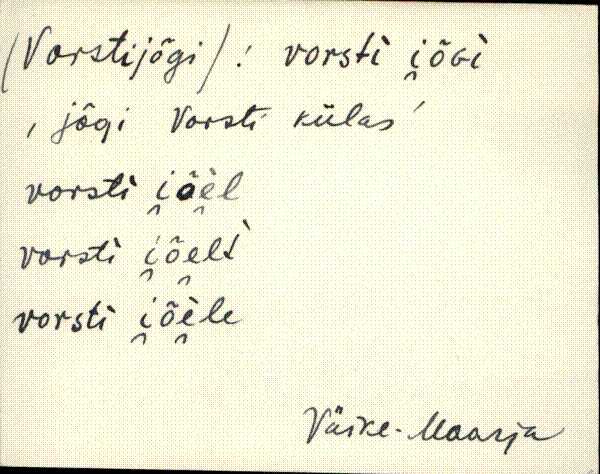 (Vorstijõgi): vorsti i̯õGi
, jõgi Vorsti külas'
vorsti i̯õe̯l
vorsti i̯õe̯lt
vorsti i̯õe̯le
Väike-Maarja